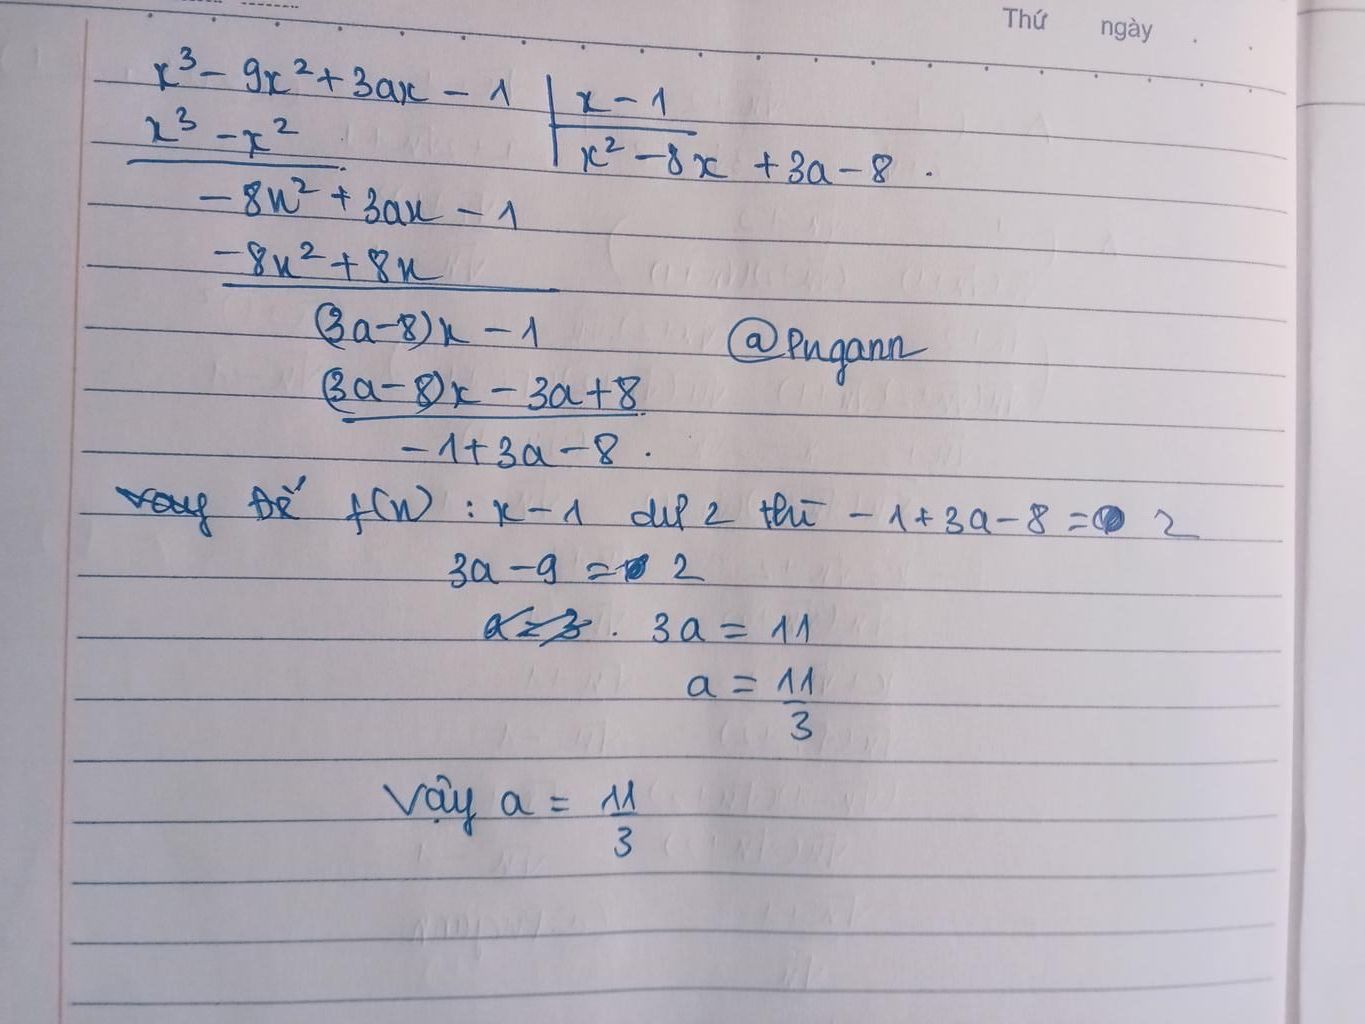 Thứ ngày
x³ - 9x² + 3ax - 1 | x - 1
x³ - x² | x² - 8x + 3a - 8 .
- 8x² + 3ax - 1
- 8x² + 8x
(3a-8)x - 1
@Pngann
(3a-8)x - 3a + 8
- 1 + 3a - 8 .
Để f(x) : x - 1 dư 2 thì - 1 + 3a - 8 = 2
3a - 9 = 2
a = 3 . 3a = 11
a = 11/3
Vậy a = 11/3